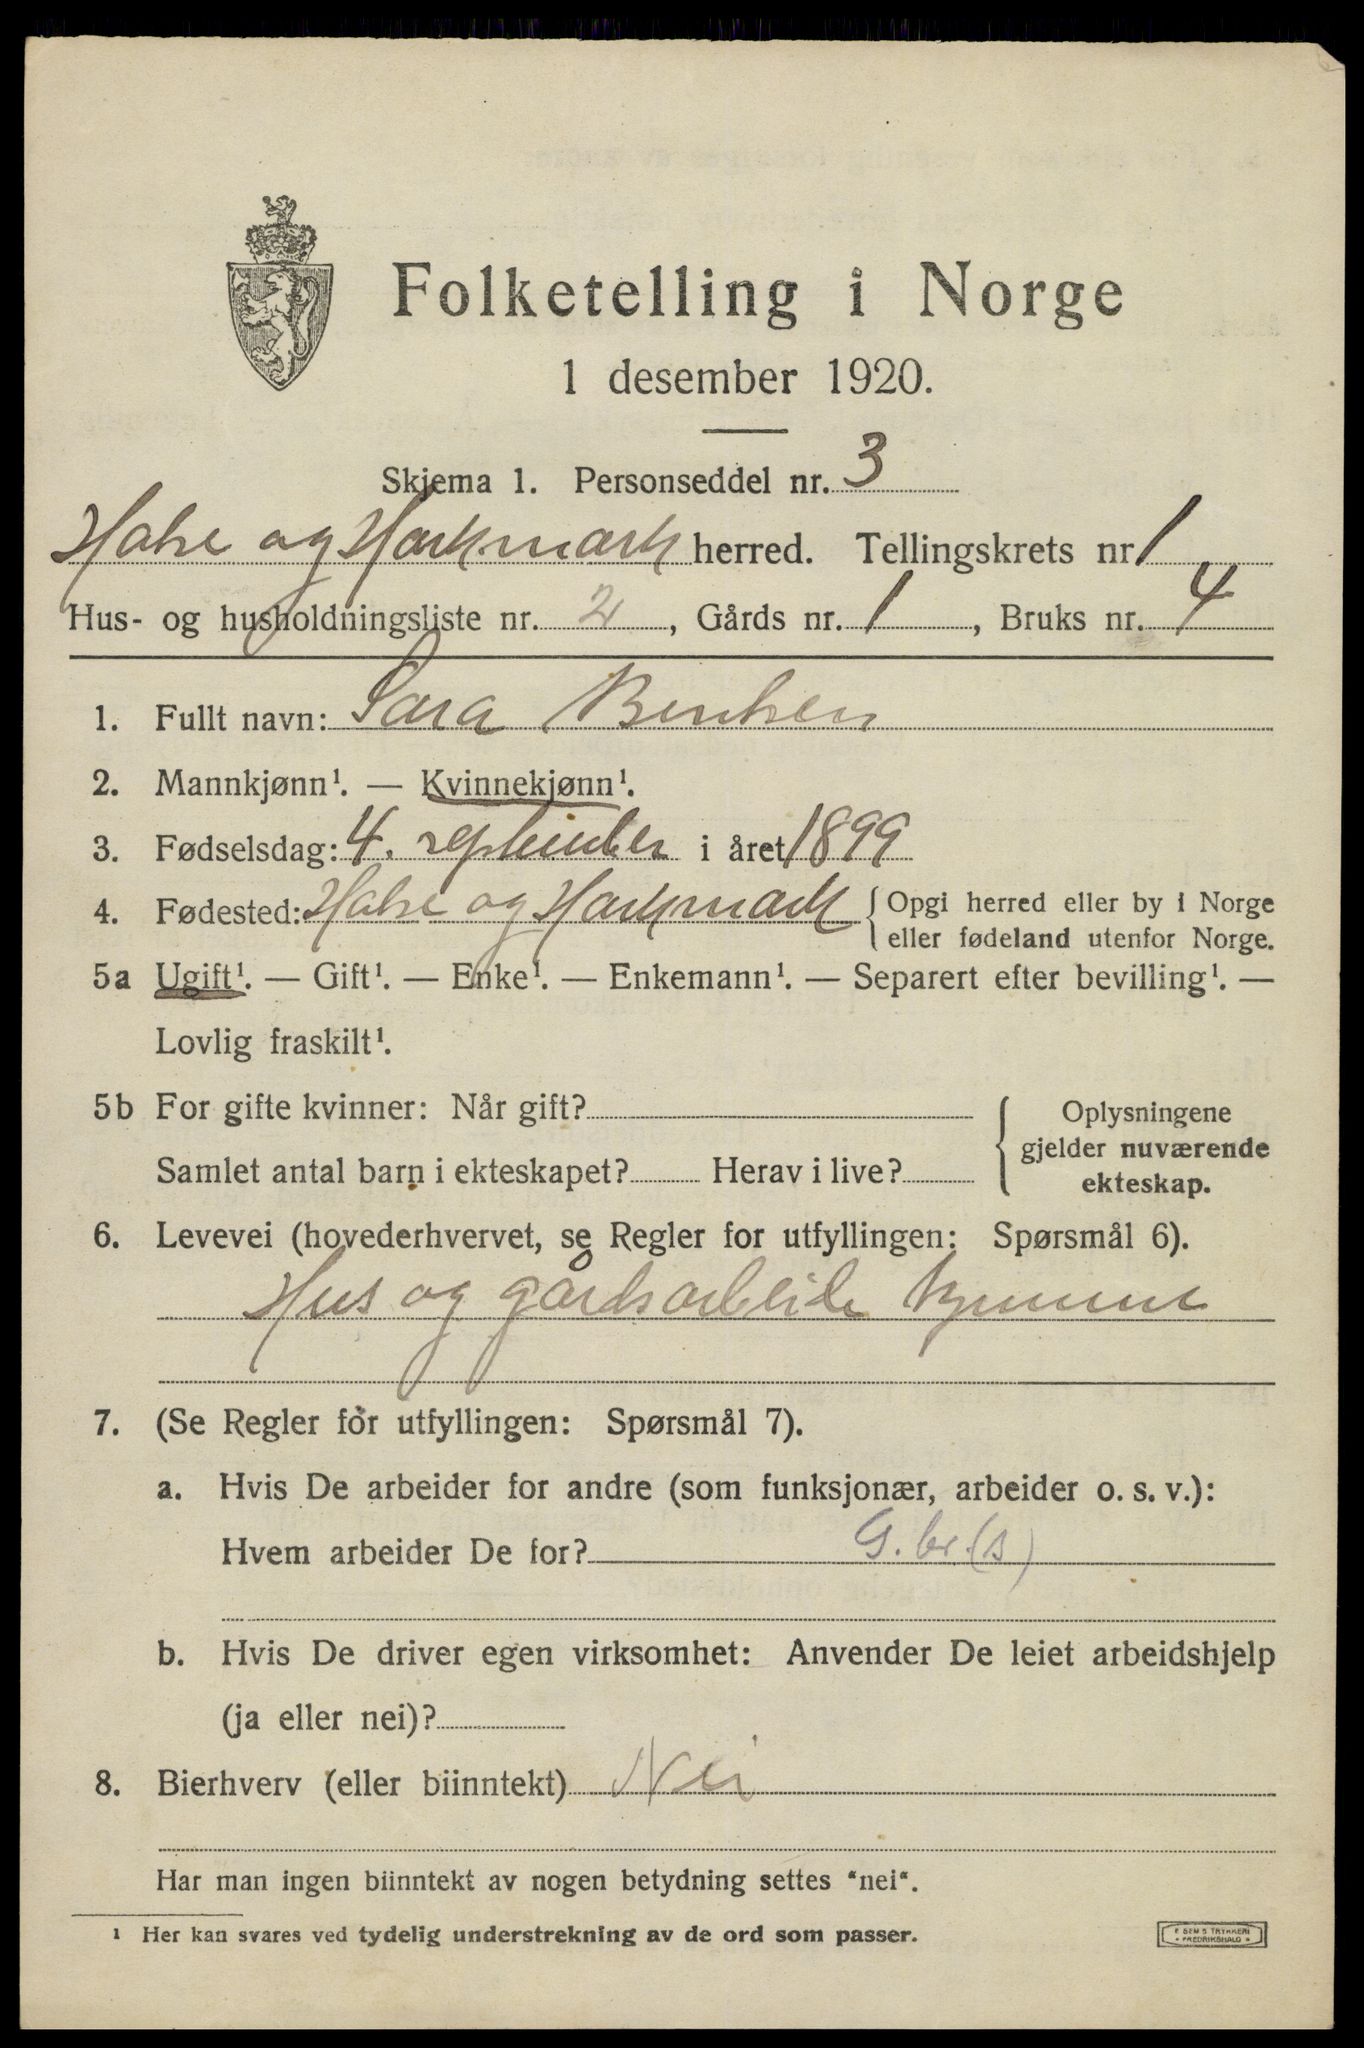 Folketelling i Norge
1 desember 1920.
Skjema 1. Personseddel nr. 3
Halse og Harkmark herred. Tellingskrets nr 1
Hus- og husholdningsliste nr. 2, Gårds nr. 1, Bruks nr. 4
1. Fullt navn: Sara Bentsen
2. Mannkjønn¹. — Kvinnekjønn¹.
3. Fødselsdag: 4. september i året 1899
4. Fødested: Halse og Harkmark { Opgi herred eller by i Norge
eller fødeland utenfor Norge.
5a Ugift¹. — Gift¹. — Enke¹. — Enkemann¹. — Separert efter bevilling¹. —
Lovlig fraskilt¹.
5b For gifte kvinner: Når gift?
Samlet antal barn i ekteskapet? Herav i live?
{ Oplysningene
gjelder nuværende
ekteskap.
6. Levevei (hovederhvervet, se Regler for utfyllingen: Spørsmål 6).
Hus og gårdsarbeide hjemme
7. (Se Regler for utfyllingen: Spørsmål 7).
a. Hvis De arbeider for andre (som funksjonær, arbeider o. s. v.):
Hvem arbeider De for? G. br. (s)
b. Hvis De driver egen virksomhet: Anvender De leiet arbeidshjelp
(ja eller nei)?
8. Bierhverv (eller biinntekt) Nei
Har man ingen biinntekt av nogen betydning settes "nei".
¹ Her kan svares ved tydelig understrekning av de ord som passer.
E SEM'S TRYKKERI
FREDRIKSHALD